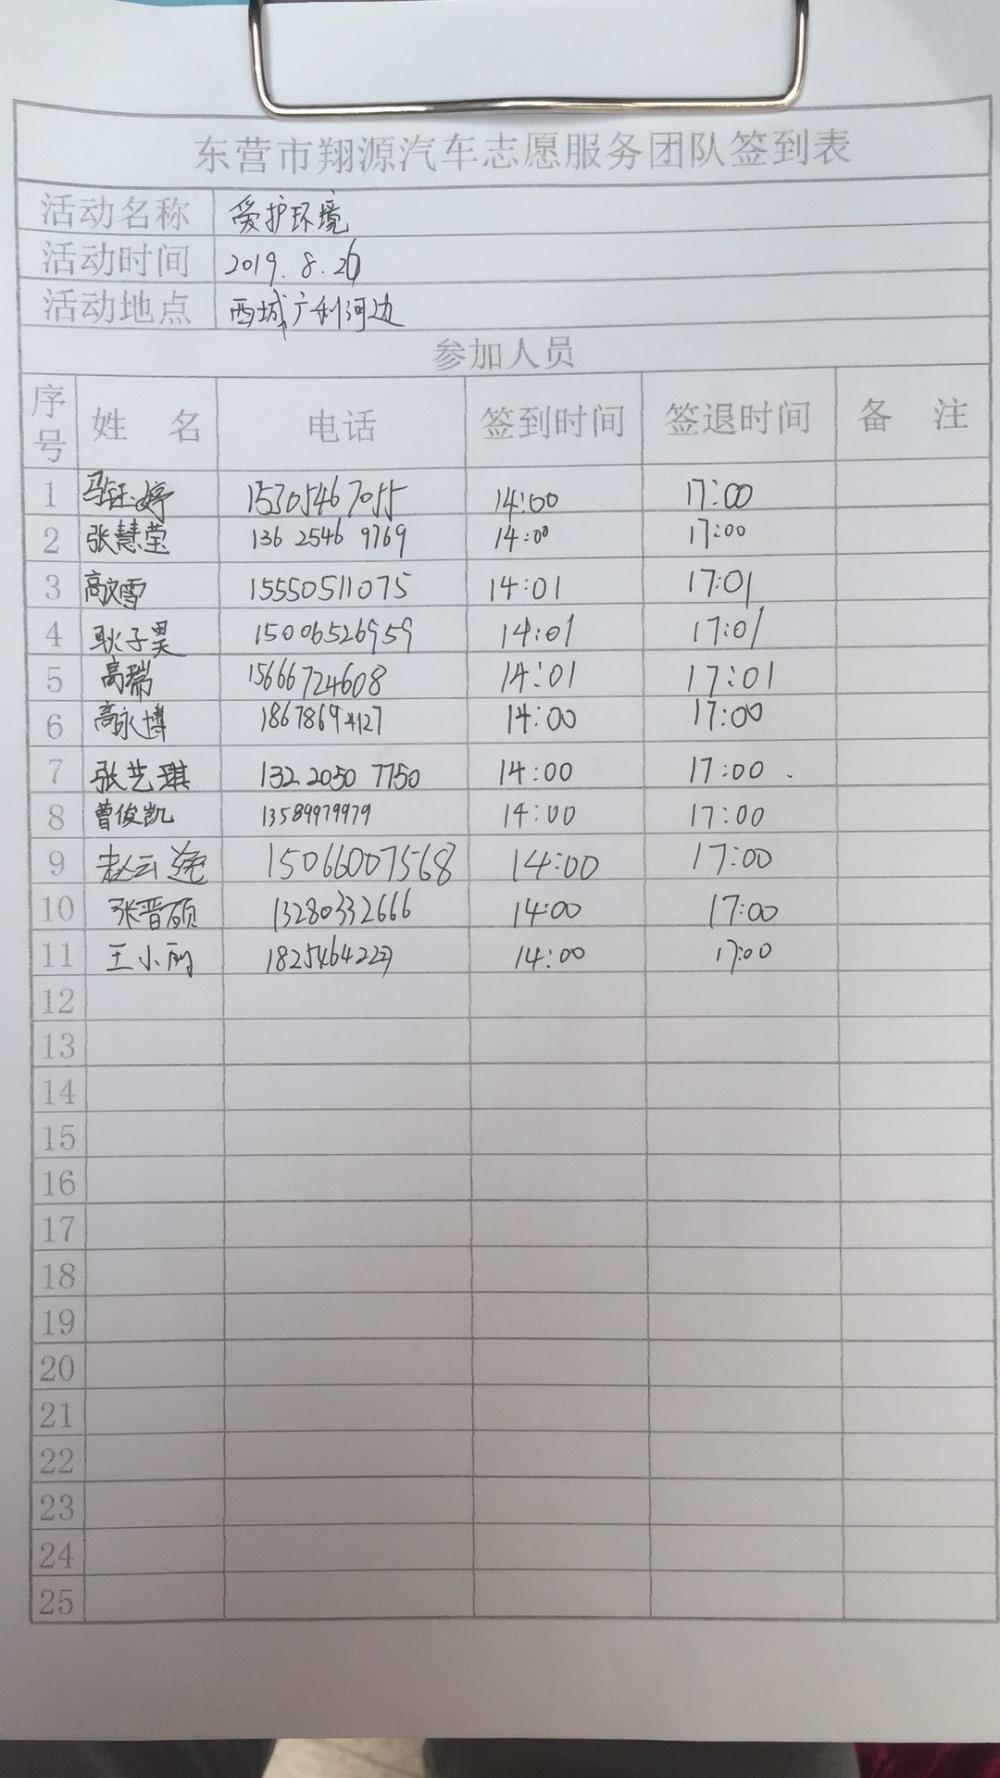 东营市翔源汽车志愿服务团队签到表
活动名称 爱护环境
活动时间 2019.8.20
活动地点 西城广利河边
参加人员
序号 姓名 电话 签到时间 签退时间 备注
1 马钰婷 15305467055 14:00 17:00
2 张慧莹 136 2546 9769 14:00 17:00
3 高文雪 15550511075 14:01 17:01
4 耿子昊 15006526959 14:01 17:01
5 高瑞 15666724608 14:01 17:01
6 高永博 14:00 17:00
7 张艺琪 132 2050 7750 14:00 17:00
8 曹俊凯 13589979979 14:00 17:00
9 赵云 15066007568 14:00 17:00
10 张晋硕 13280332666 14:00 17:00
11 王小丽 14:00 17:00
12
13
14
15
16
17
18
19
20
21
22
23
24
25